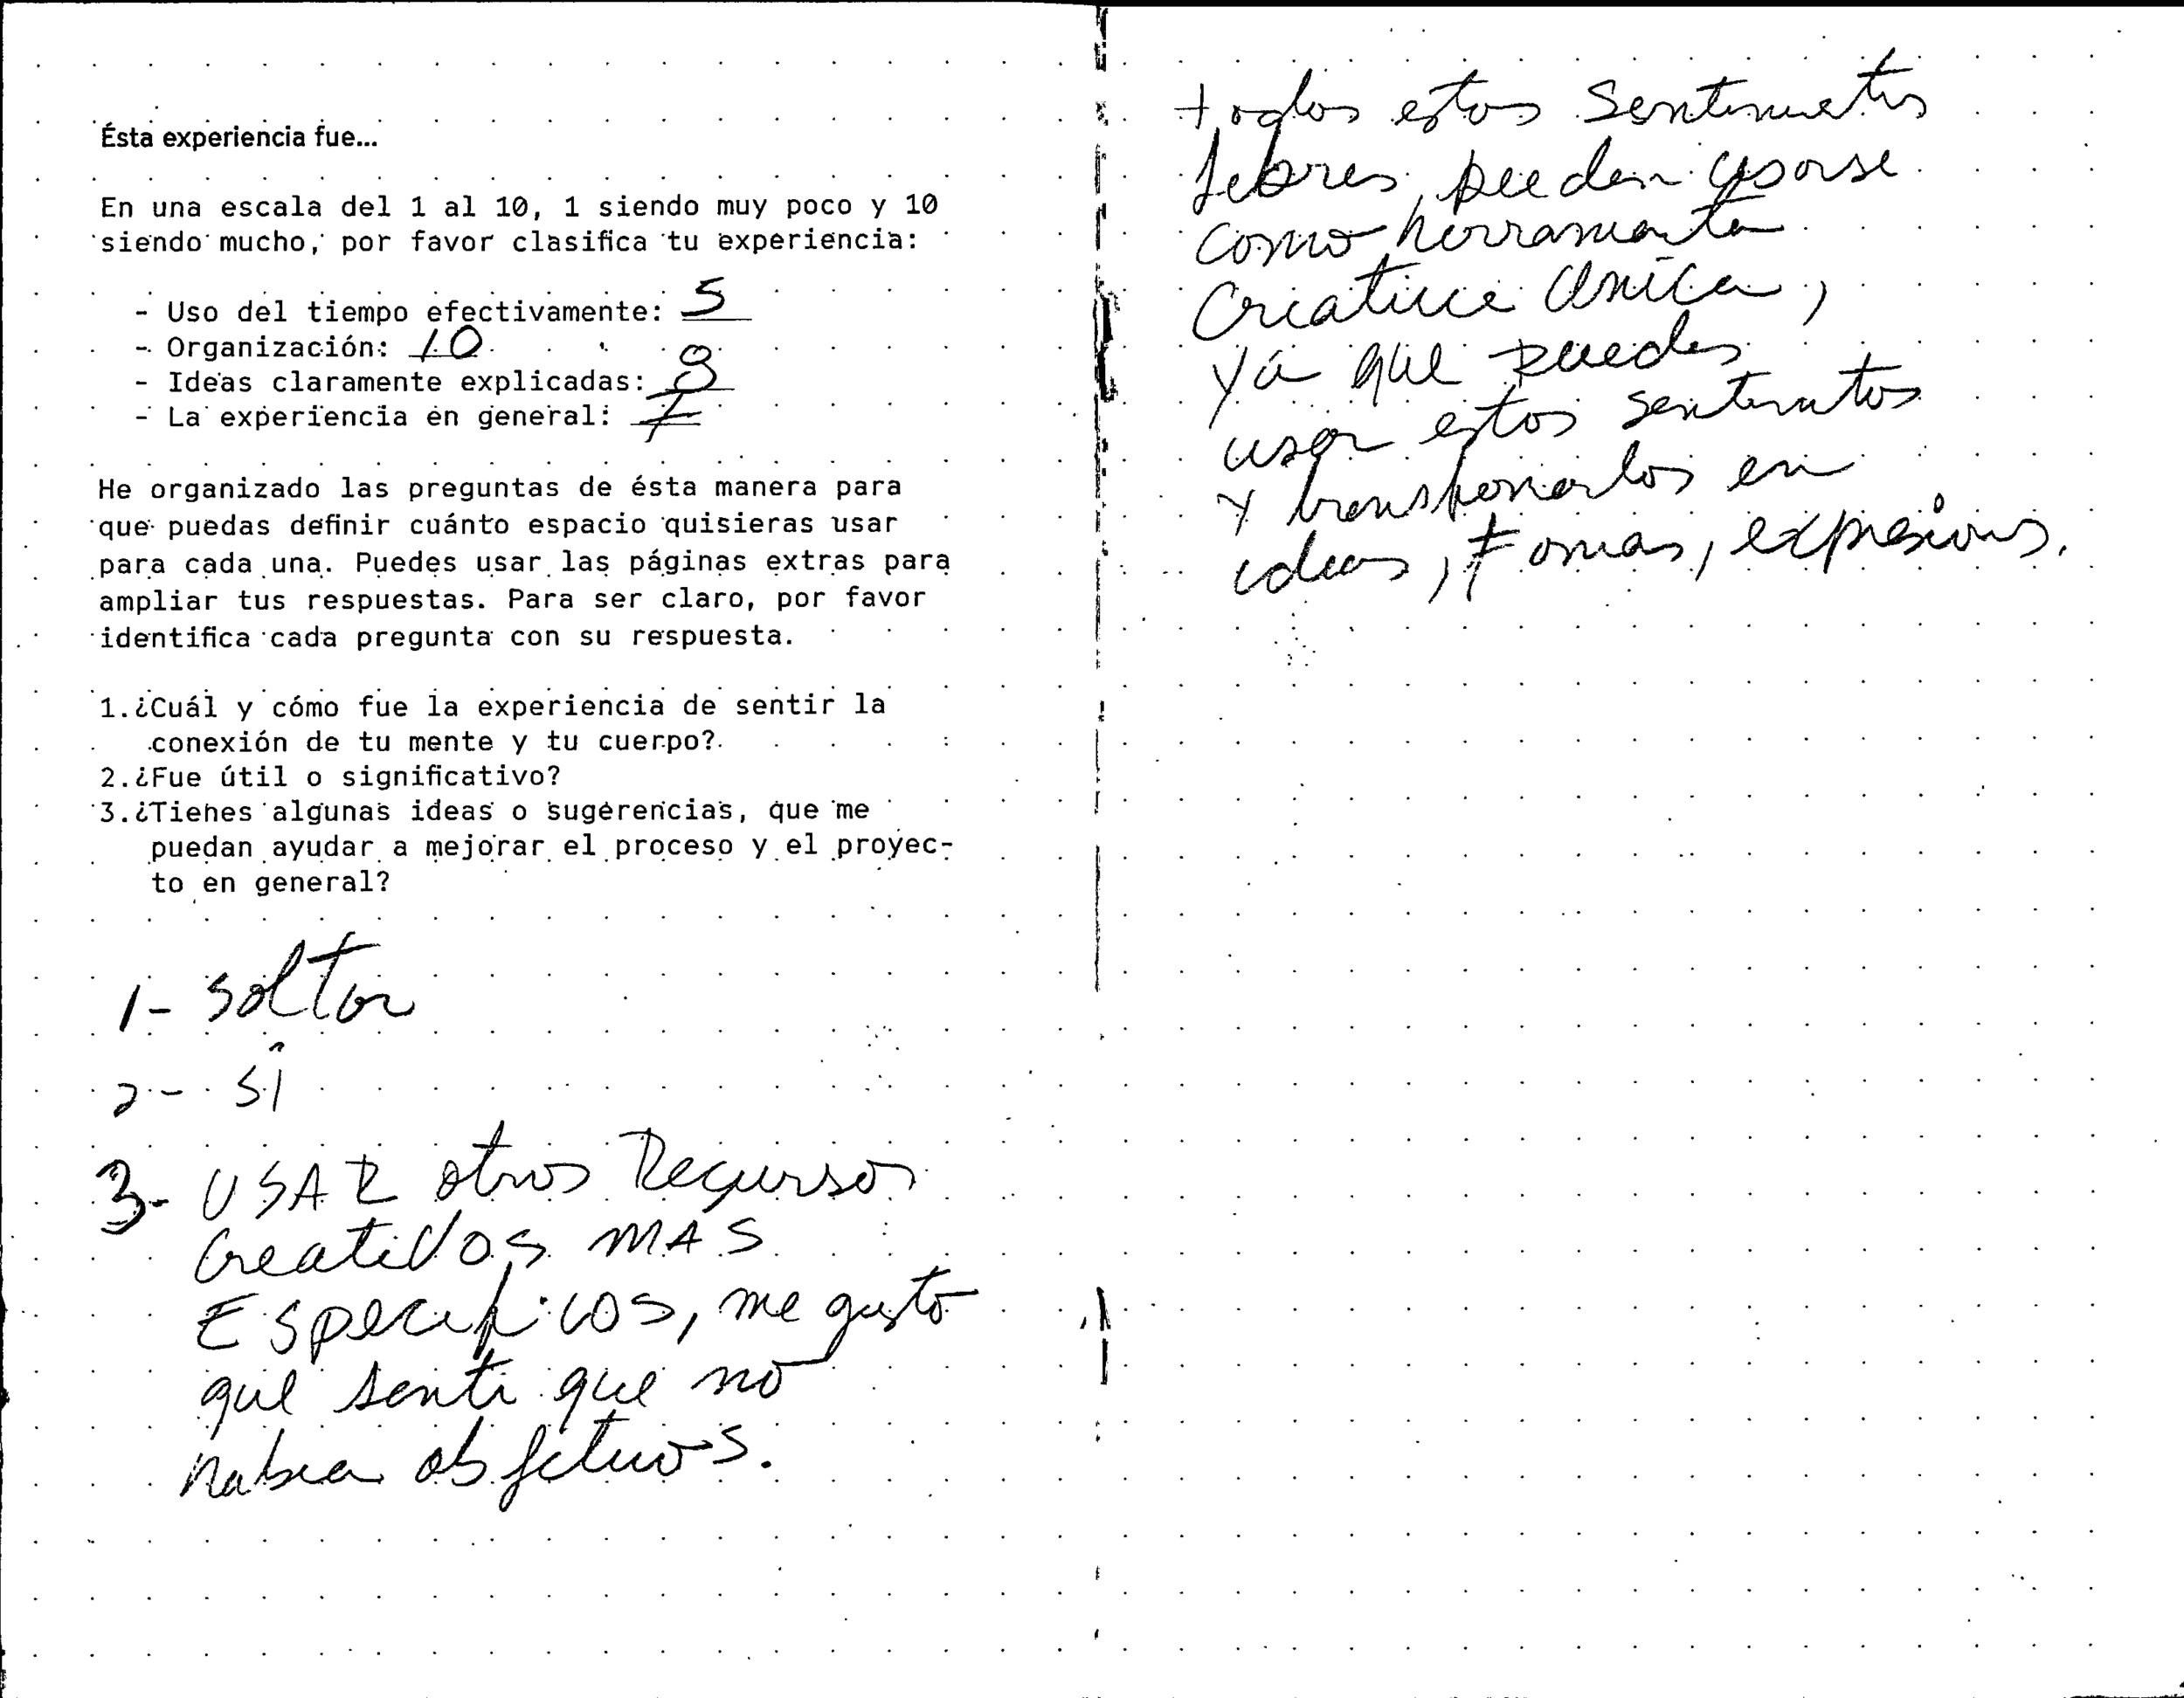 Ésta experiencia fue...
En una escala del 1 al 10, 1 siendo muy poco y 10
siendo mucho, por favor clasifica tu experiencia:
- Uso del tiempo efectivamente: 5
- Organización: 10
- Ideas claramente explicadas: 8
- La experiencia en general: 7
He organizado las preguntas de ésta manera para
que puedas definir cuánto espacio quisieras usar
para cada una. Puedes usar las páginas extras para
ampliar tus respuestas. Para ser claro, por favor
identifica cada pregunta con su respuesta.
1.¿Cuál y cómo fue la experiencia de sentir la
conexión de tu mente y tu cuerpo?
2.¿Fue útil o significativo?
3.¿Tienes algunas ideas o sugerencias, que me
puedan ayudar a mejorar el proceso y el proyec-
to en general?
1- soltar
2- sí
3- USAR otros Recursos
Creativos MAS
Especificos, me gusto
que senti que no
habia objetivos.
todos estos sentimientos
libres, pueden usarse
como herramienta
creativa unica,
ya que puedes
usar estos sentimientos
y transformarlos en
ideas, Formas, expresiones.